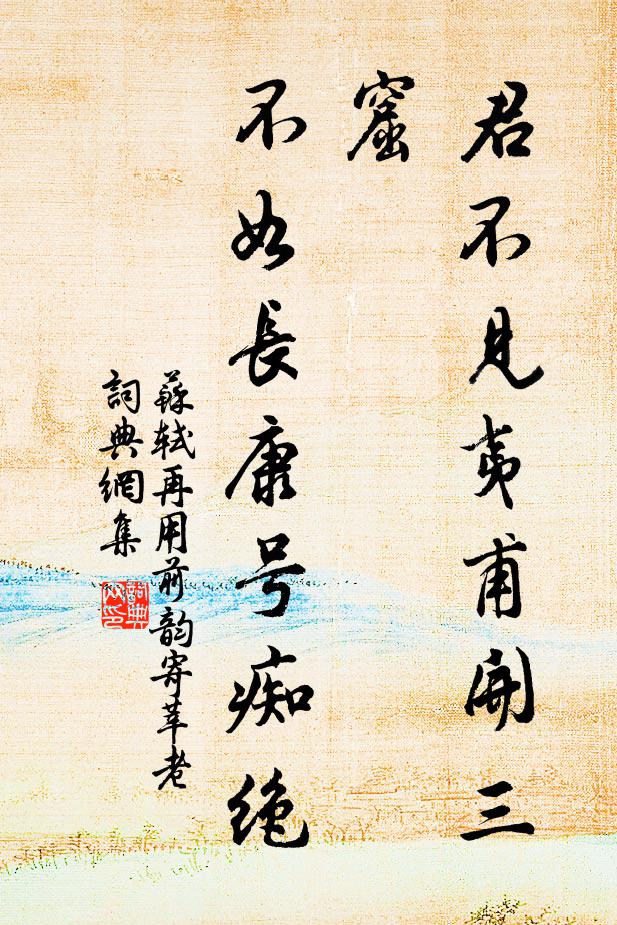 君不見夷甫開三
窟
不如長康号痴絶
蘇軾再用前韵寄莘老
詞典網集